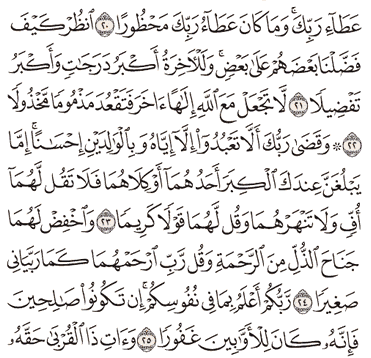 عَطَآءِ رَبِّكَۚ وَمَا كَانَ عَطَآءُ رَبِّكَ مَحۡظُورًا ۝٢٠ ٱنظُرۡ كَيۡفَ
فَضَّلۡنَا بَعۡضَهُمۡ عَلَىٰ بَعۡضٖۚ وَلَلۡأٓخِرَةُ أَكۡبَرُ دَرَجَٰتٖ وَأَكۡبَرُ
تَفۡضِيلٗا ۝٢١ لَّا تَجۡعَلۡ مَعَ ٱللَّهِ إِلَٰهًا ءَاخَرَ فَتَقۡعُدَ مَذۡمُومٗا مَّخۡذُولٗا
۝٢٢ ۞ وَقَضَىٰ رَبُّكَ أَلَّا تَعۡبُدُوٓاْ إِلَّآ إِيَّاهُ وَبِٱلۡوَٰلِدَيۡنِ إِحۡسَٰنًاۚ إِمَّا
يَبۡلُغَنَّ عِندَكَ ٱلۡكِبَرَ أَحَدُهُمَآ أَوۡ كِلَاهُمَا فَلَا تَقُل لَّهُمَآ
أُفّٖ وَلَا تَنۡهَرۡهُمَا وَقُل لَّهُمَا قَوۡلٗا كَرِيمٗا ۝٢٣ وَٱخۡفِضۡ لَهُمَا
جَنَاحَ ٱلذُّلِّ مِنَ ٱلرَّحۡمَةِ وَقُل رَّبِّ ٱرۡحَمۡهُمَا كَمَا رَبَّيَانِي
صَغِيرٗا ۝٢٤ رَّبُّكُمۡ أَعۡلَمُ بِمَا فِي نُفُوسِكُمۡۚ إِن تَكُونُواْ صَٰلِحِينَ
فَإِنَّهُۥ كَانَ لِلۡأَوَّٰبِينَ غَفُورٗا ۝٢٥ وَءَاتِ ذَا ٱلۡقُرۡبَىٰ حَقَّهُۥ